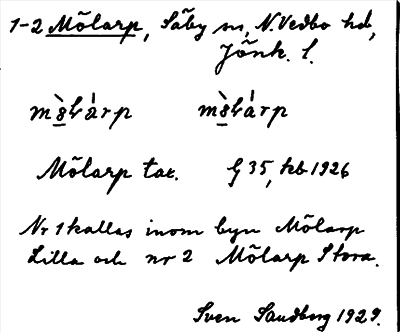 1-2 Mölarp, Säby sn, N. Vedbo hd,
Jönk. l.
Mölarp tax. G 35, kb 1926
Nr 1 kallas inom byn Mölarp
Lilla och nr 2 Mölarp Stora.
Sven Sandberg 1929.